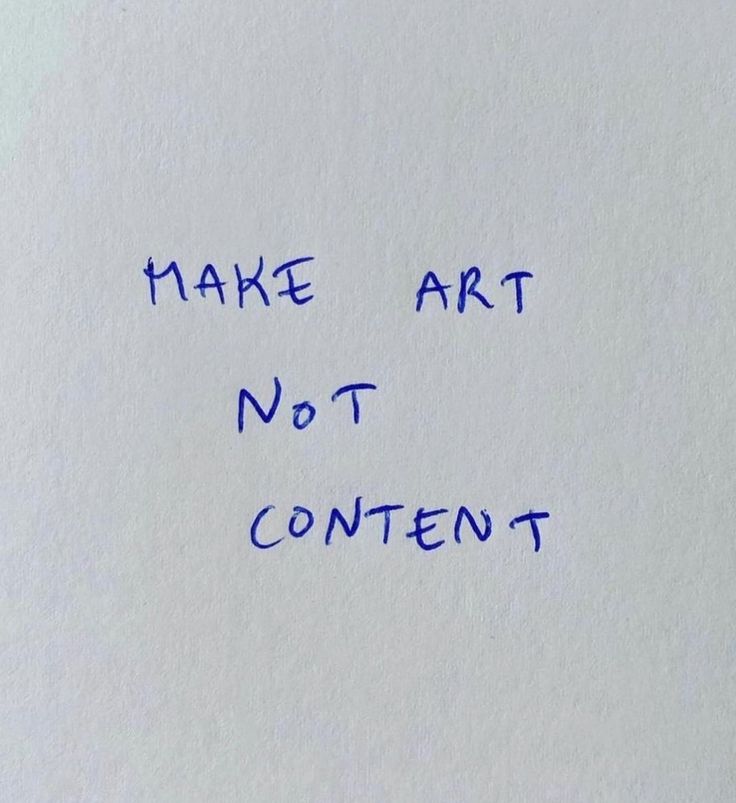 MAKE ART
NOT
CONTENT